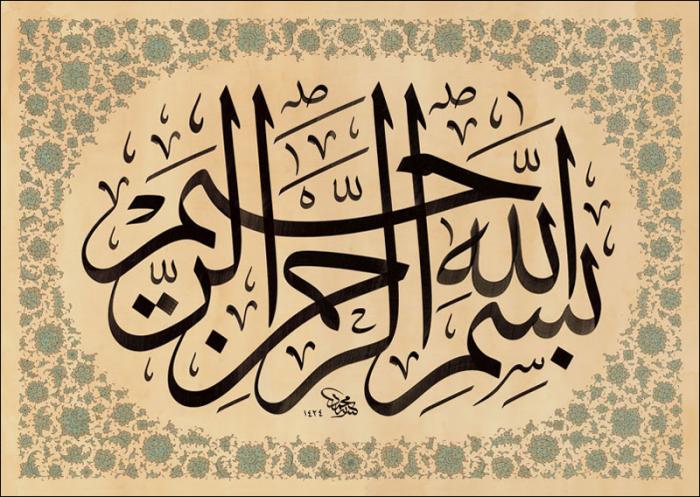 بِسْمِ اللّٰهِ الرَّحْمٰنِ الرَّحِيمِ
١٤٢٤